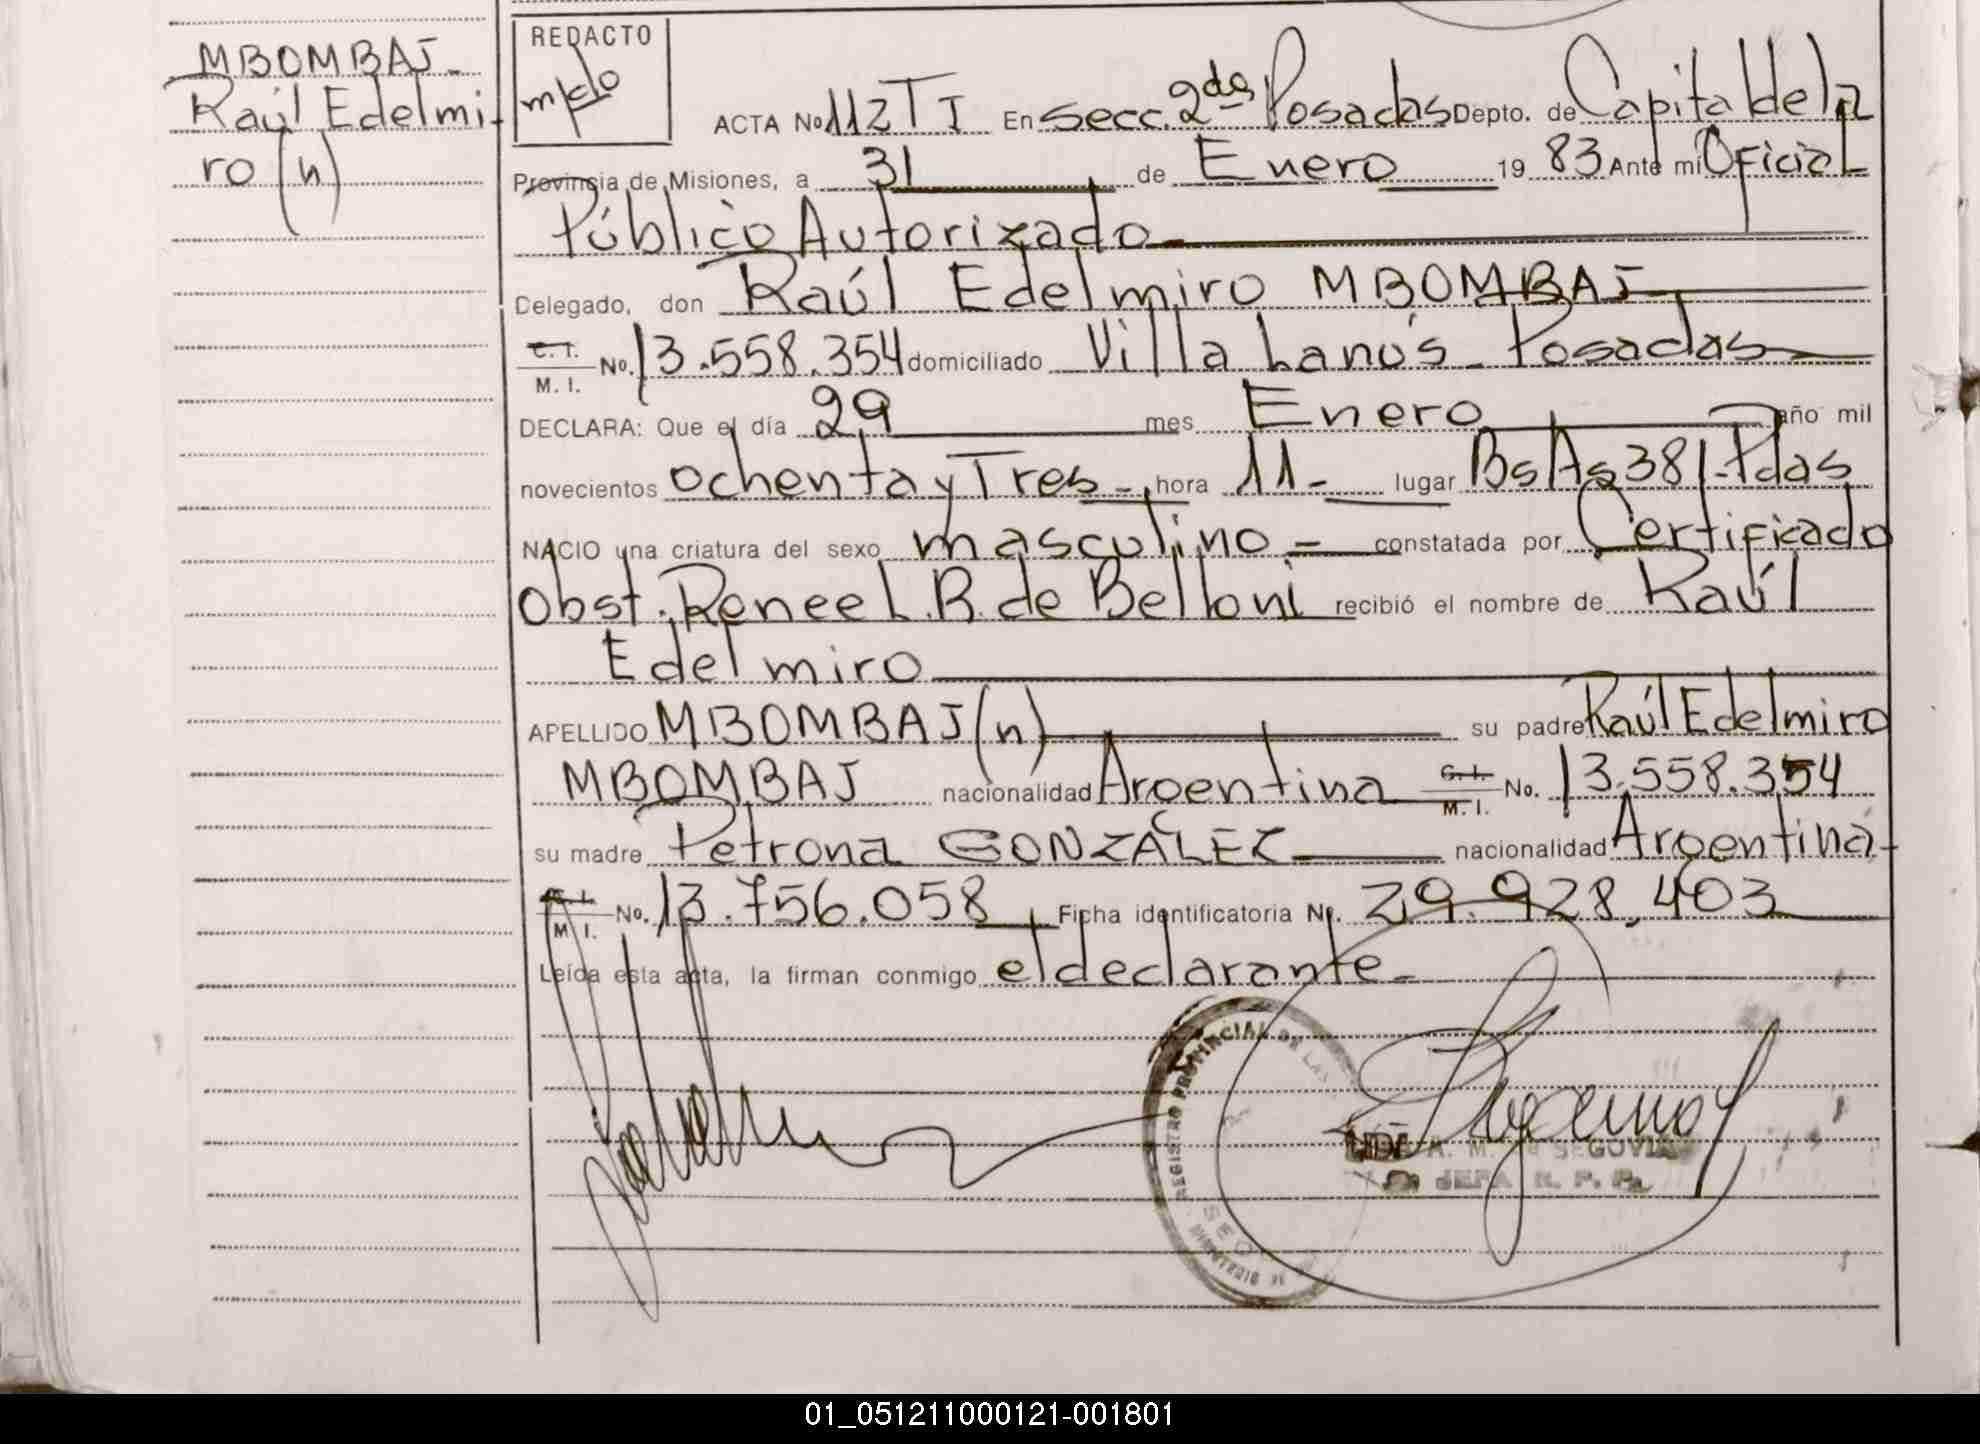 MBOMBAJ
Raúl Edelmi-
ro (n)
REDACTO
ACTA No 112 T I En Secc. 2da Posadas Depto. de Capital de la
Provincia de Misiones, a 31 de Enero 19 83 Ante mí Oficial
Público Autorizado
Delegado, don Raúl Edelmiro MBOMBAJ
C. I. M. I. No. 13.558.354 domiciliado Villa Lanús - Posadas
DECLARA: Que el día 29 mes Enero año mil
novecientos ochenta y Tres - hora 11 - lugar Bs As 381 - Pdas
NACIO una criatura del sexo masculino - constatada por Certificado
Obst. Renee L. B. de Belloni recibió el nombre de Raúl
Edelmiro
APELLIDO MBOMBAJ (n) su padre Raúl Edelmiro
MBOMBAJ nacionalidad Argentina C. I. M. I. No. 13.558.354
su madre Petrona GONZÁLEZ nacionalidad Argentina
C. I. M. I. No. 13.756.058 Ficha identificatoria Nr. 29.928.403
Leída esta acta, la firman conmigo el declarante -
REGISTRO PROVINCIAL DE LAS
MINISTERIO
SEGOVIA
JEFA R. P. P.
01_051211000121-001801